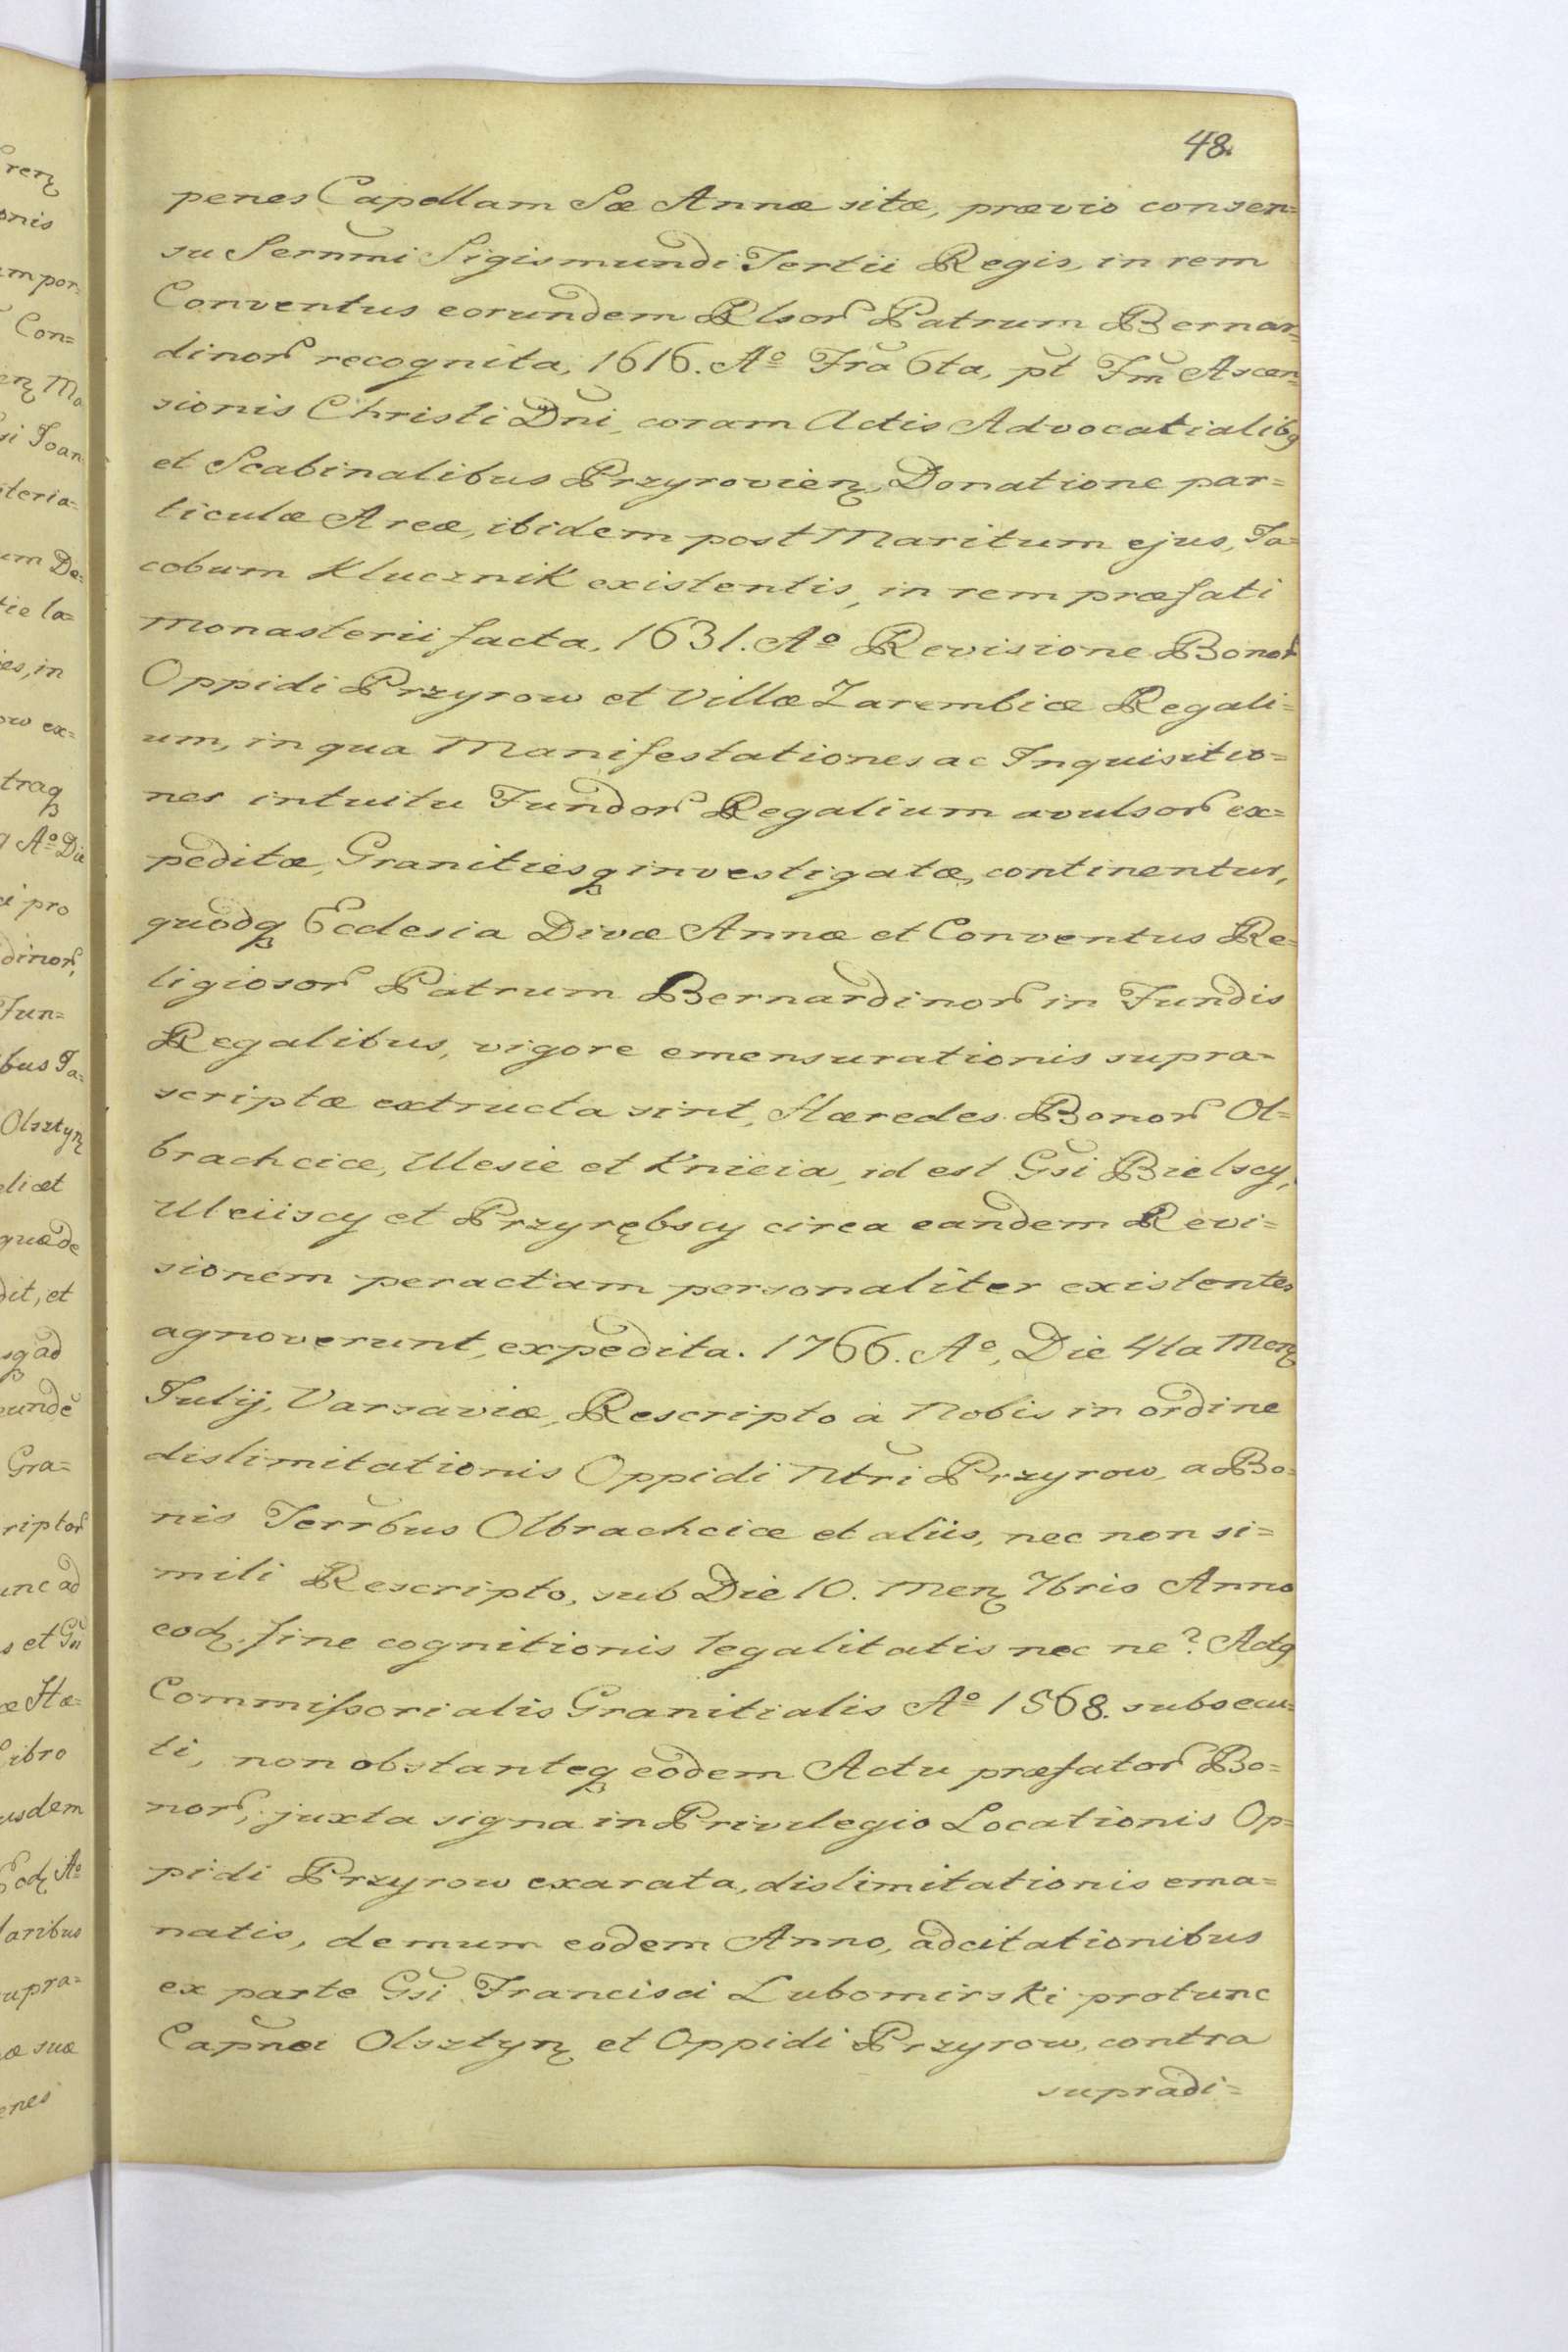 48.
penes Capellam Sæ Annæ sitæ, prævio consen=
su Sernmi Sigismundi Tertii Regis, in rem
Conventus eorundem Rlsor Patrum Bernar=
dinor recognita, 1616. Aº Fra 6ta, pt Fm Ascen=
sionis Christi Dni, coram Actis Advocatialibq
et Scabinalibus Przyrovien, Donatione par=
ticulæ Areæ, ibidem post Maritum ejus, Ja=
cobum Klucznik existentis, in rem præfati
Monasterii facta, 1631. Aº Revisione Bonor
Oppidi Przyrow et Villæ Zarembice Regali=
um, in qua Manifestationes ac Inquisitio=
nes intuitu Fundor Regalium avulsor ex=
peditæ, Granitiesq investigatæ, continentur,
quodq Ecclesia Divæ Annæ et Conventus Re=
ligiosor Patrum Bernardinor in Fundis
Regalibus, vigore emensurationis supra=
scriptæ extructa sint, Hæredes Bonor Ol=
brachcice, Ulesie et Knieia, id est Gsi Bielscy,
Uleiiscy et Przyrębscy circa eandem Revi=
sionem peractam personaliter existentes
agnoverunt, expedita. 1766. Aº, Die 4ta Men
Julij, Varsaviæ, Rescripto à Nobis in ordine
dislimitationis Oppidi Ntri Przyrow, a Bo=
nis Terrbus Olbrachcice et aliis, nec non si=
mili Rescripto, sub Die 10. Men 7bris Anno
eod, fine cognitionis legalitatis nec ne? Actq
Commissorialis Granitialis Aº 1568. subsecu=
ti, non obstanteq eodem Actu præfator Bo=
nor, juxta signa in Privilegio Locationis Op=
pidi Przyrow exarata, dislimitationis ema=
natis, demum eodem Anno, adcitationibus
ex parte Gsi Francisci Lubomirski protunc
Capnei Olsztyn et Oppidi Przyrow, contra
supradi=